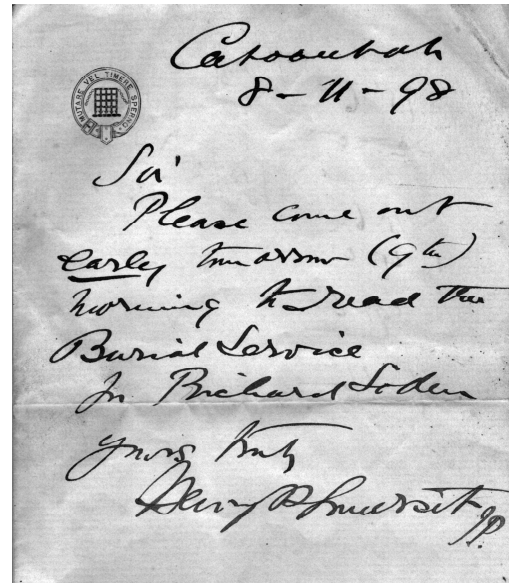 Caboonbah
8-11-98
MUTARE VEL TIMERE SPERNO
Sir
Please come out
early tomorrow (9th)
morning to read the
Burial Service
for Richard Soden
Yours truly
Henry P Somerset JP.